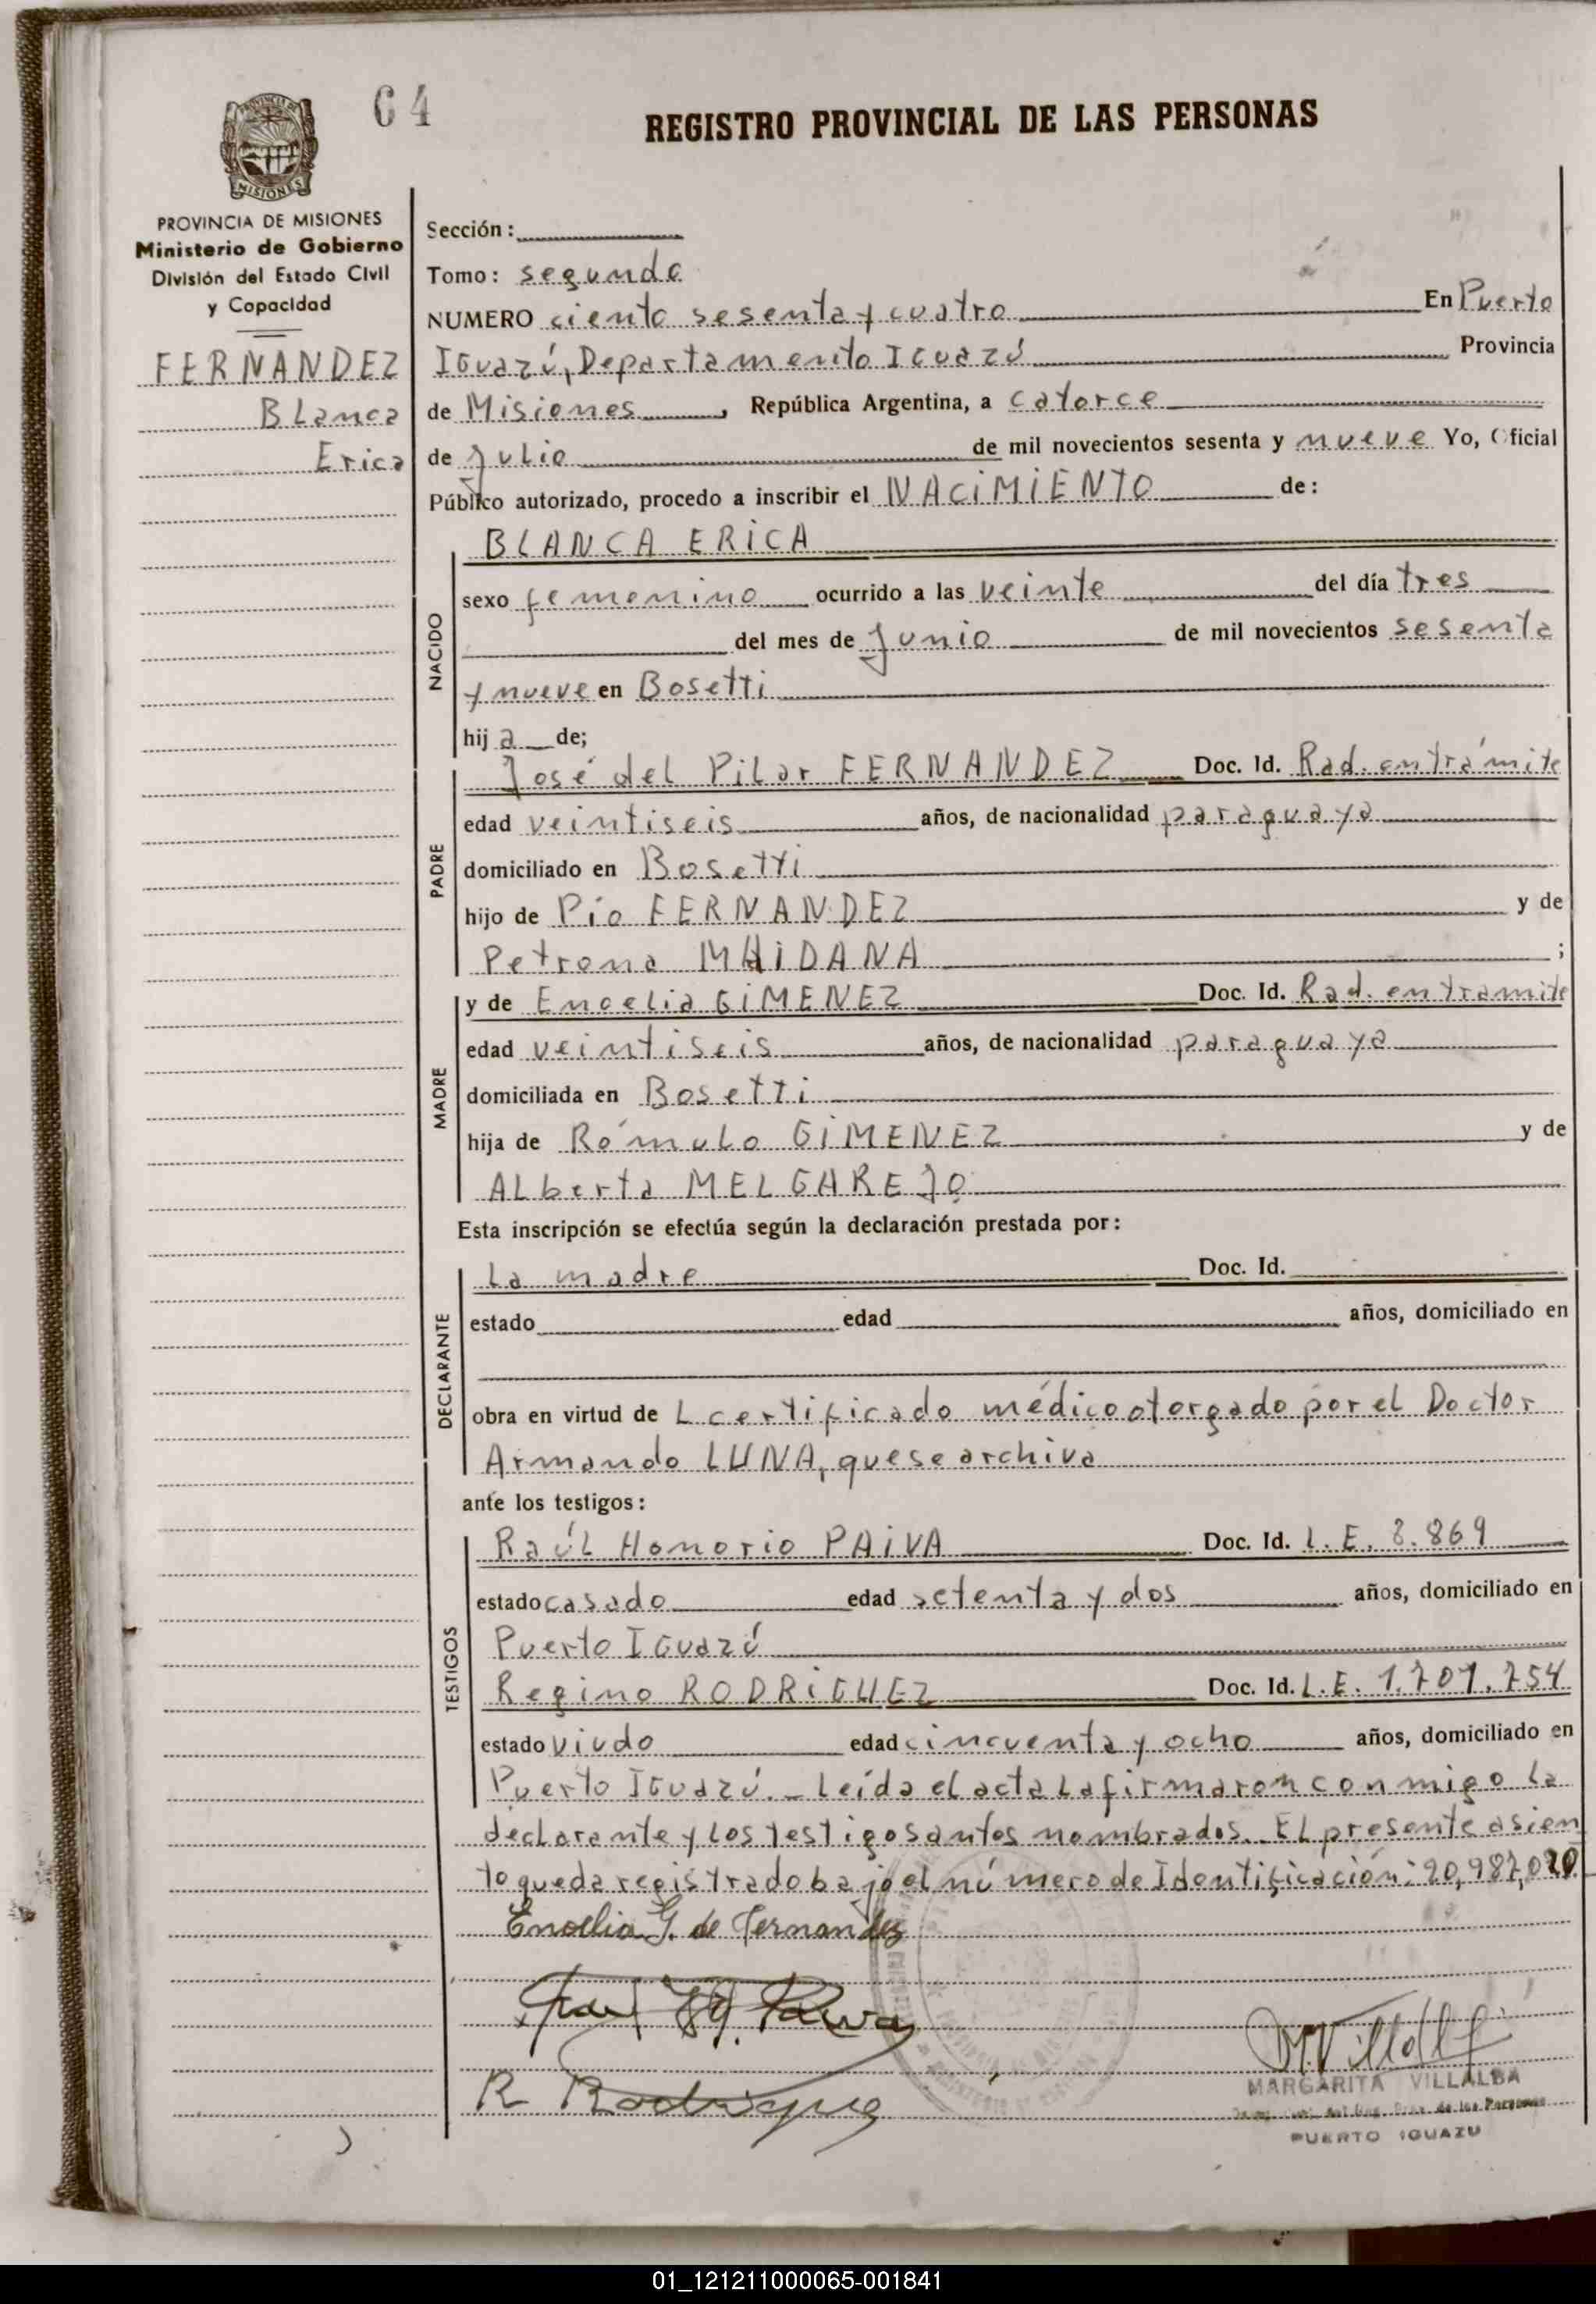 64
REGISTRO PROVINCIAL DE LAS PERSONAS
MISIONES
PROVINCIA DE MISIONES
Ministerio de Gobierno
División del Estado Civil
y Capacidad
FERNANDEZ
Blanca
Erica
Sección:
Tomo: segundo
NUMERO ciento sesenta y cuatro En Puerto
Iguazú, Departamento Iguazú Provincia
de Misiones, República Argentina, a catorce
de Julio de mil novecientos sesenta y nueve Yo, Oficial
Público autorizado, procedo a inscribir el NACIMIENTO de:
NACIDO
BLANCA ERICA
sexo femenino ocurrido a las veinte del día tres
del mes de Junio de mil novecientos sesenta
y nueve en Bosetti
hija de;
PADRE
José del Pilar FERNANDEZ Doc. Id. Rad. en trámite
edad veintiseis años, de nacionalidad paraguaya
domiciliado en Bosetti
hijo de Pío FERNANDEZ y de
Petrona MAIDANA ;
MADRE
y de Enoelia GIMENEZ Doc. Id. Rad. en tramite
edad veintiseis años, de nacionalidad paraguaya
domiciliada en Bosetti
hija de Rómulo GIMENEZ y de
Alberta MELGAREJO
Esta inscripción se efectúa según la declaración prestada por:
DECLARANTE
La madre Doc. Id.
estado edad años, domiciliado en
obra en virtud de l certificado médico otorgado por el Doctor
Armando LUNA, que se archiva
ante los testigos:
TESTIGOS
Raúl Honorio PAIVA Doc. Id. L.E. 8.869
estado casado edad setenta y dos años, domiciliado en
Puerto Iguazú
Regino RODRIGUEZ Doc. Id. L.E. 1.707.754
estado viudo edad cincuenta y ocho años, domiciliado en
Puerto Iguazú. - Leída el acta la firmaron conmigo la
declarante y los testigos antes nombrados. El presente asien
to queda registrado bajo el número de Identificación: 20,987,020.
Enoelia G. de Fernandez
R Rodriguez
MARGARITA VILLALBA
de las Personas
PUERTO IGUAZU
01_121211000065-001841